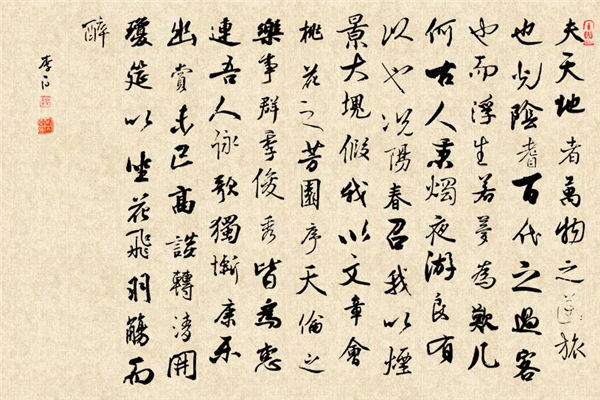 夫天地者萬物之逆旅
也光陰者百代之過客
也而浮生若夢為歡几
何古人秉燭夜游良有
以也况陽春召我以煙
景大塊假我以文章會
桃花之芳園序天倫之
樂事群季俊秀皆為惠
連吾人詠歌獨慚康乐
幽賞未已高談轉清開
瓊筵以坐花飛羽觴而
醉
李白